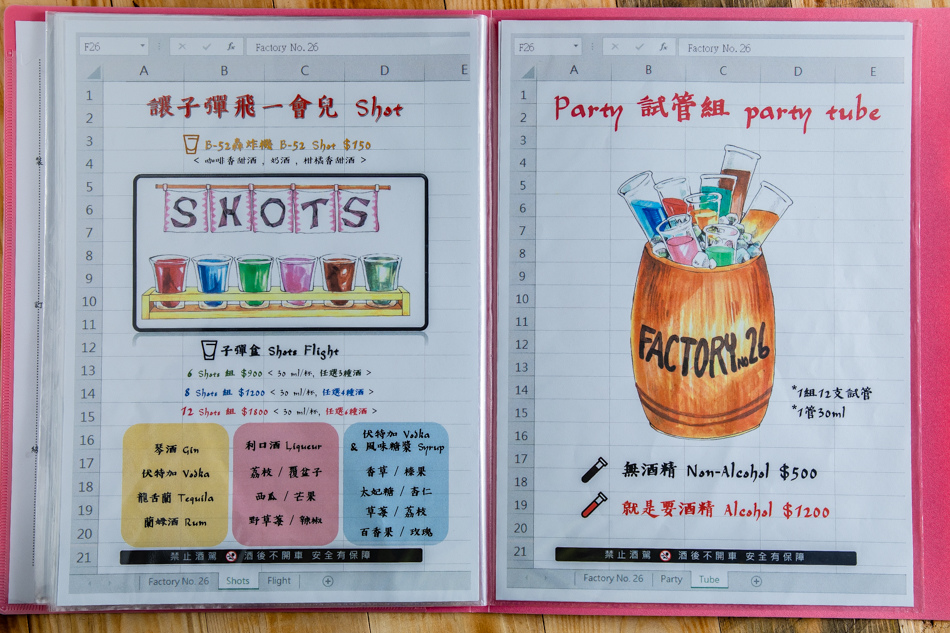 F26 Factory No. 26
A B C D E
讓子彈飛一會兒 Shot
B-52轟炸機 B-52 Shot $150
< 咖啡香甜酒，奶酒，柑橘香甜酒 >
SHOTS
子彈盒 Shots Flight
6 Shots 組 $900 < 30 ml/杯, 任選3種酒 >
8 Shots 組 $1200 < 30 ml/杯, 任選4種酒 >
12 Shots 組 $1800 < 30 ml/杯, 任選6種酒 >
琴酒 Gin
伏特加 Vodka
龍舌蘭 Tequila
蘭姆酒 Rum
利口酒 Liqueur
荔枝 / 覆盆子
西瓜 / 芒果
野草莓 / 辣椒
伏特加 Vodka
& 風味糖漿 Syrup
香草 / 榛果
太妃糖 / 杏仁
草莓 / 荔枝
百香果 / 玫瑰
1
2
3
4
5
6
7
8
9
10
11
12
13
14
15
16
17
18
19
20
21
禁止酒駕 酒後不開車 安全有保障
Factory No. 26 Shots Flight
F26 Factory No. 26
A B C D E
Party 試管組 party tube
FACTORY No.26
*1組12支試管
*1管30ml
無酒精 Non-Alcohol $500
就是要酒精 Alcohol $1200
1
2
3
4
5
6
7
8
9
10
11
12
13
14
15
16
17
18
19
20
21
禁止酒駕 酒後不開車 安全有保障
Factory No. 26 Party Tube